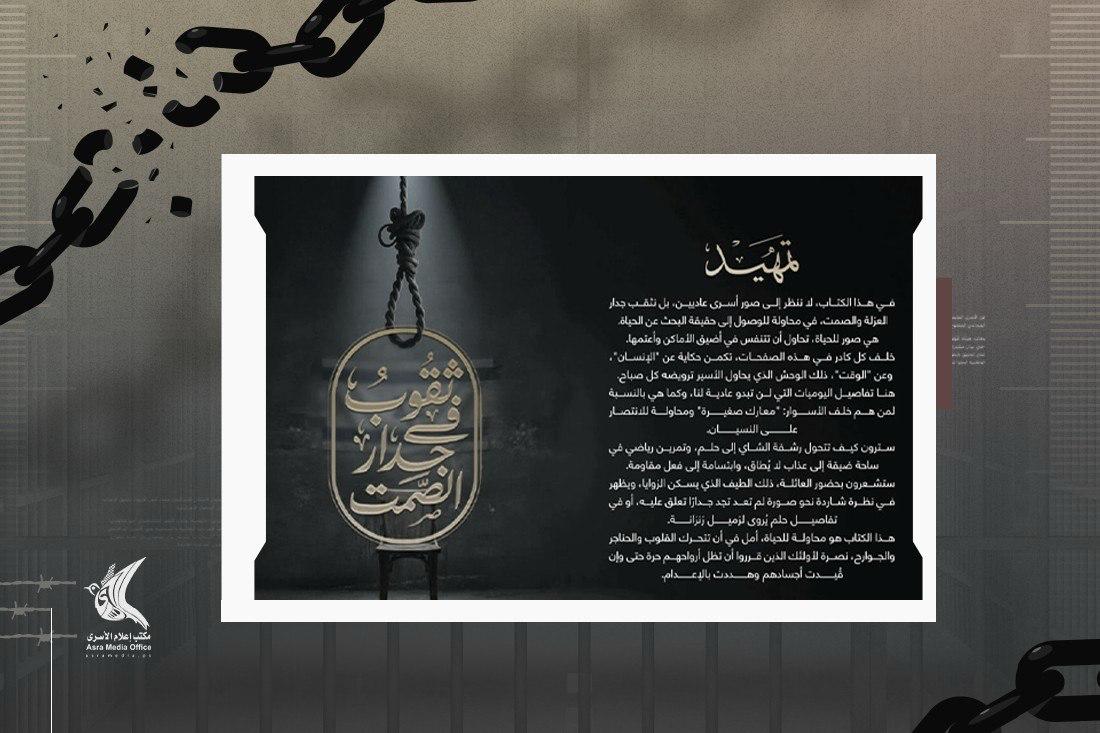 تمهيد
في هذا الكتاب، لا ننظر إلى صور أسرى عاديين، بل نثقب جدار
العزلة والصمت، في محاولة للوصول إلى حقيقة البحث عن الحياة.
هي صور للحياة، تحاول أن تتنفس في أضيق الأماكن وأعتمها.
خلف كل كادر في هذه الصفحات، تكمن حكاية عن "الإنسان"،
وعن "الوقت"، ذلك الوحش الذي يحاول الأسير ترويضه كل صباح.
هنا تفاصيل اليوميات التي لن تبدو عادية لنا، وكما هي بالنسبة
لمن هم خلف الأسوار: "معارك صغيرة" ومحاولة للانتصار
على النسيان.
سترون كيف تتحول رشفة الشاي إلى حلم، وتمرين رياضي في
ساحة ضيقة إلى عذاب لا يُطاق، وابتسامة إلى فعل مقاومة.
ستشعرون بحضور العائلة، ذلك الطيف الذي يسكن الزوايا، ويظهر
في نظرة شاردة نحو صورة لم تعد تجد جدارًا تعلق عليه، أو في
تفاصيل حلم يُروى لزميل زنزانة.
هذا الكتاب هو محاولة للحياة، أمل في أن تتحرك القلوب والحناجر
والجوارح، نصرة لأولئك الذين قرروا أن تظل أرواحهم حرة حتى وإن
قُيدت أجسادهم وهددت بالإعدام.
ثقوب
في
جدار
الصمت
مكتب إعلام الأسرى
Asra Media Office
asramedia.ps